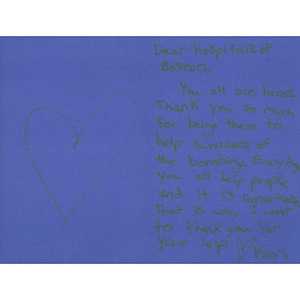 Dear hospitals of
Boston,
You all are heros.
Thank you so much
for being there to
help survivers of
the bombing. Everyday
you all help people
and it is remarkable.
That is why I want
to thank you for
your help.